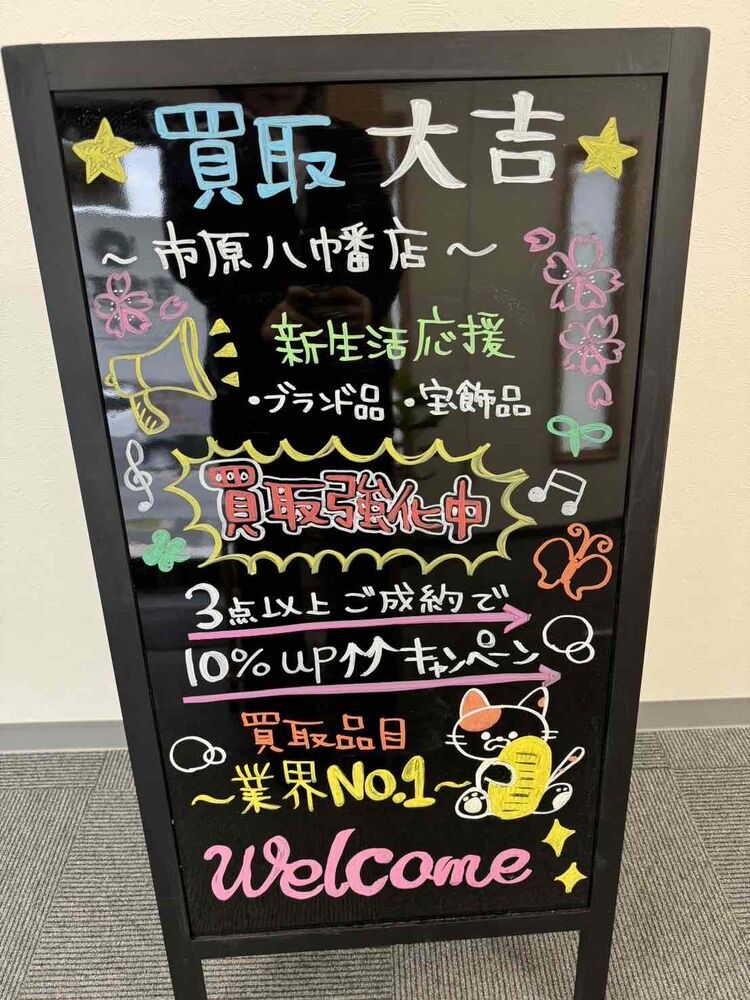 買取 大吉
~ 市原八幡店 ~
新生活応援
・ブランド品 ・宝飾品
買取強化中
3点以上 ご成約で
10% UP↑↑ キャンペーン
買取品目
~業界No.1~
Welcome